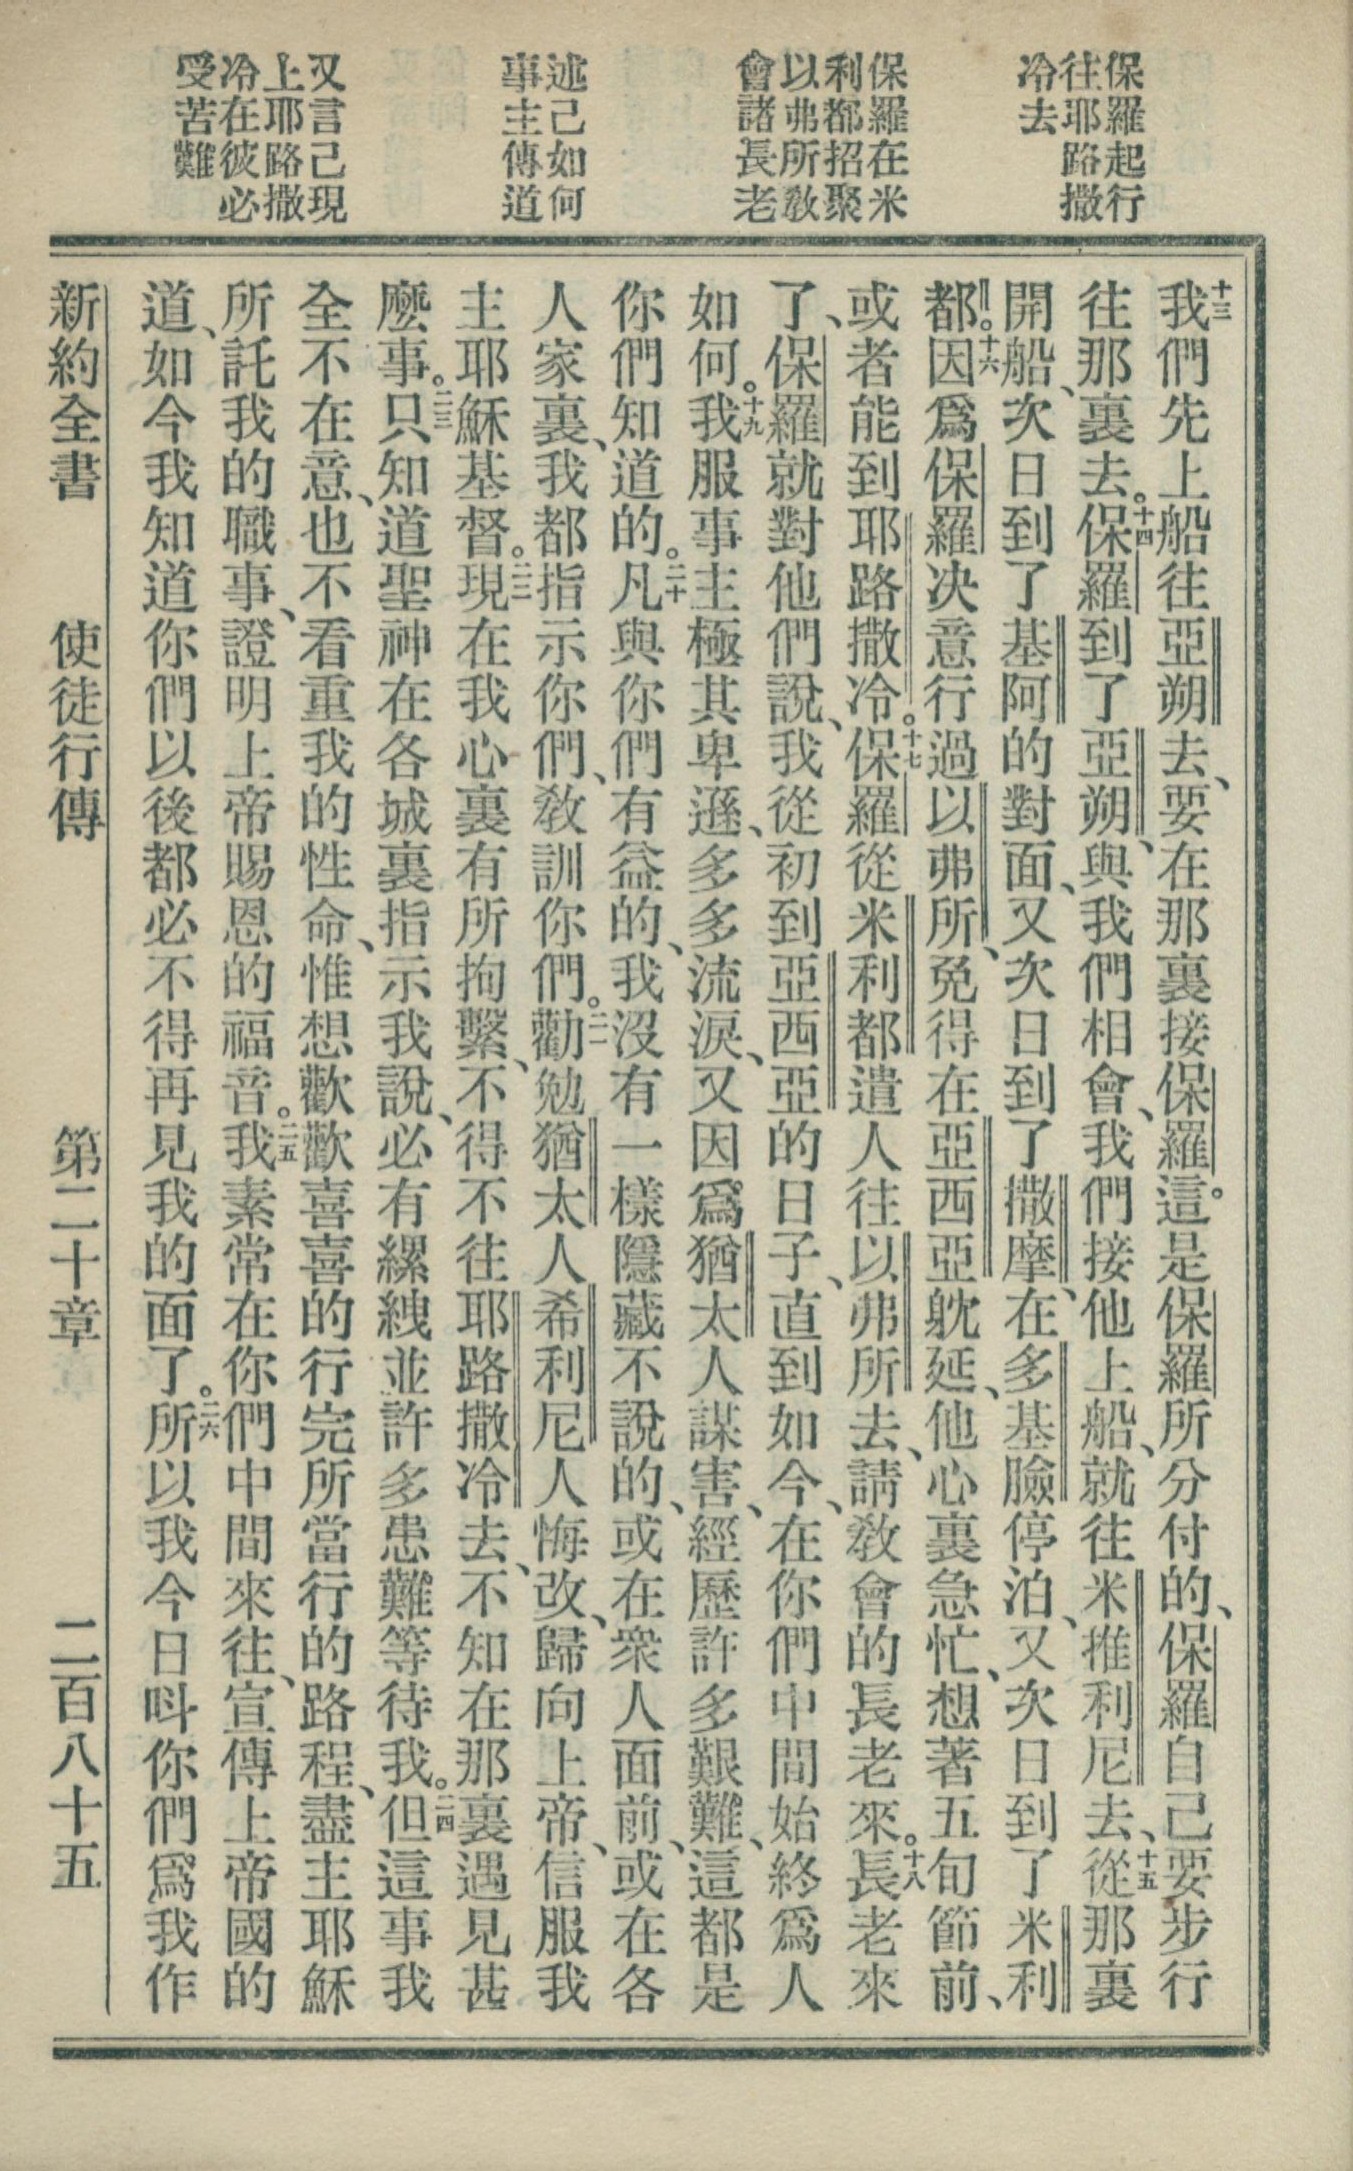 保羅起行
往耶路撒
冷去
保羅在米
利都招聚
以弗所敎
會諸長老
述己如何
事主傳道
又言己現
上耶路撒
冷在彼必
受苦難
十三我們先上船往亞朔去、要在那裏接保羅。這是保羅所分付的、保羅自己要步行
往那裏去。十四保羅到了亞朔、與我們相會、我們接他上船、就往米推利尼去、十五從那裏
開船、次日到了基阿的對面、又次日到了撒摩、在多基臉停泊、又次日到了米利
都。十六因爲保羅决意行過以弗所、免得在亞西亞躭延、他心裏急忙、想著五旬節前、
或者能到耶路撒冷。十七保羅從米利都遣人往以弗所去、請敎會的長老來。十八長老來
了、保羅就對他們說、我從初到亞西亞的日子、直到如今、在你們中間始終爲人
如何。十九我服事主極其卑遜、多多流淚、又因爲猶太人謀害、經歷許多艱難、這都是
你們知道的。二十凡與你們有益的、我沒有一樣隱藏不說的、或在衆人面前、或在各
人家裏、我都指示你們、敎訓你們。二一勸勉猶太人希利尼人悔改、歸向上帝、信服我
主耶穌基督。二二現在我心裏有所拘繫、不得不往耶路撒冷去、不知在那裏遇見甚
麽事。二三只知道聖神在各城裏指示我說、必有縲絏並許多患難等待我。二四但這事我
全不在意、也不看重我的性命、惟想歡歡喜喜的行完所當行的路程、盡主耶穌
所託我的職事、證明上帝賜恩的福音。二五我素常在你們中間來往、宣傳上帝國的
道、如今我知道你們以後都必不得再見我的面了。二六所以我今日呌你們爲我作
新約全書 使徒行傳 第二十章 二百八十五